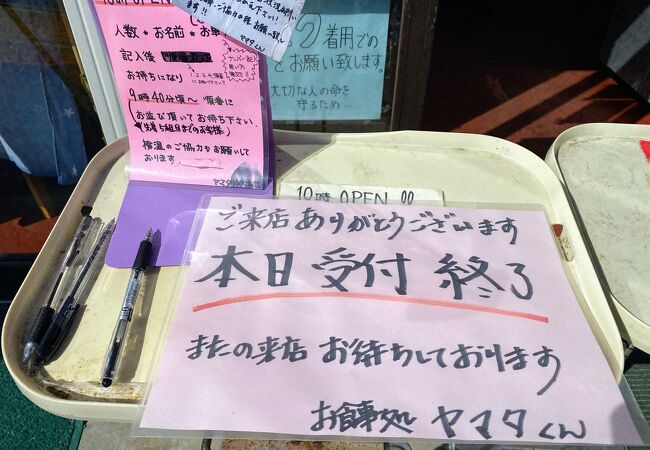 10時 OPEN
人数★お名前★お車
記入後
お待ちになり
9時40分頃〜 順番に
お並び頂いてお待ち下さい。
検温のご協力もお願いして
おります
ヤマタくん
着用での
お願い致します。
大切な人の命を
守るため…
10時 OPEN !!
ご来店ありがとうございます
本日 受付 終了
またの来店 お待ちしております
お食事処 ヤマタくん